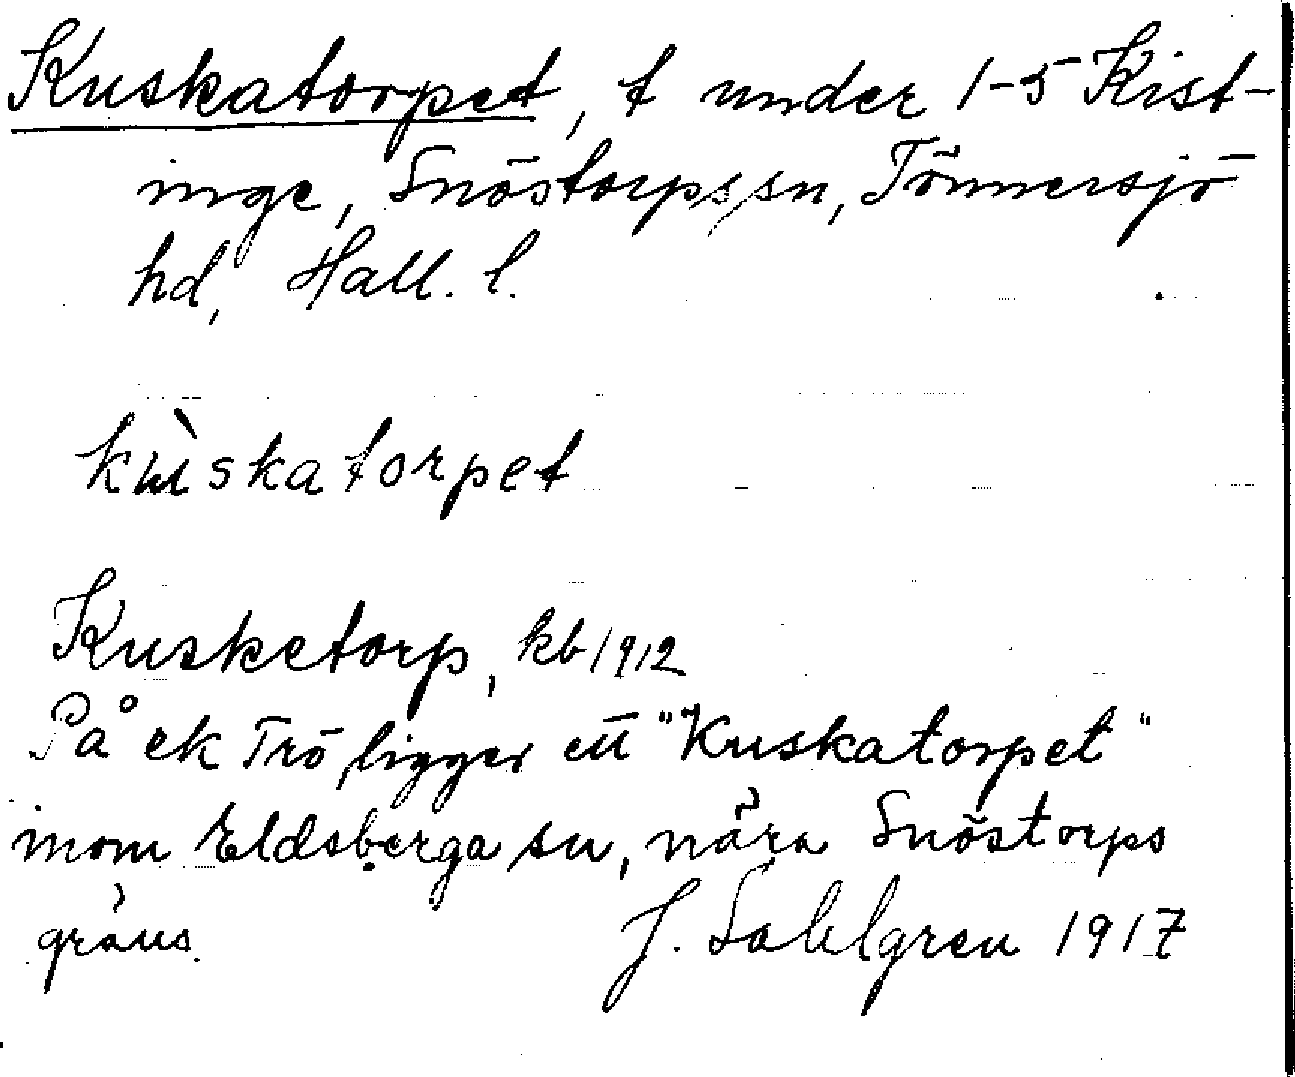 Kuskatorpet, t under 1-5 Kist-
inge, Snöstorps sn, Tönnersjö
hd, Hall. l.
kùskatorpet
Kusketorp, kb 1912
På ek Trö ligger ett "Kuskatorpet"
inom Eldsberga sn, nära Snöstorps
gräns. J. Sahlgren 1917